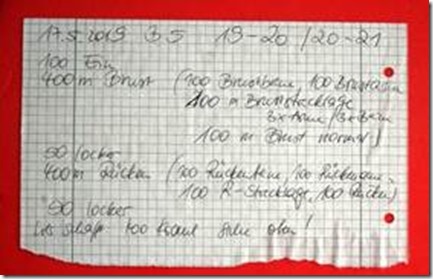 17.5.2019 35 19-20 / 20-21
100 Ein
400 m Brust (100 Brustbeine, 100 Brustarme
100 m Bruststecklage
3x Arme / 3x Bein
100 m Brust normal)
50 locker
400 m Rücken (100 Rückenbeine / 100 Rückenarme
100 R-Stecklage, 100 Rücken)
50 locker
100 Kraul Siehe oben!